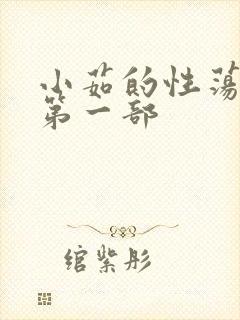 小茹的性荡
第一部
绾紫彤